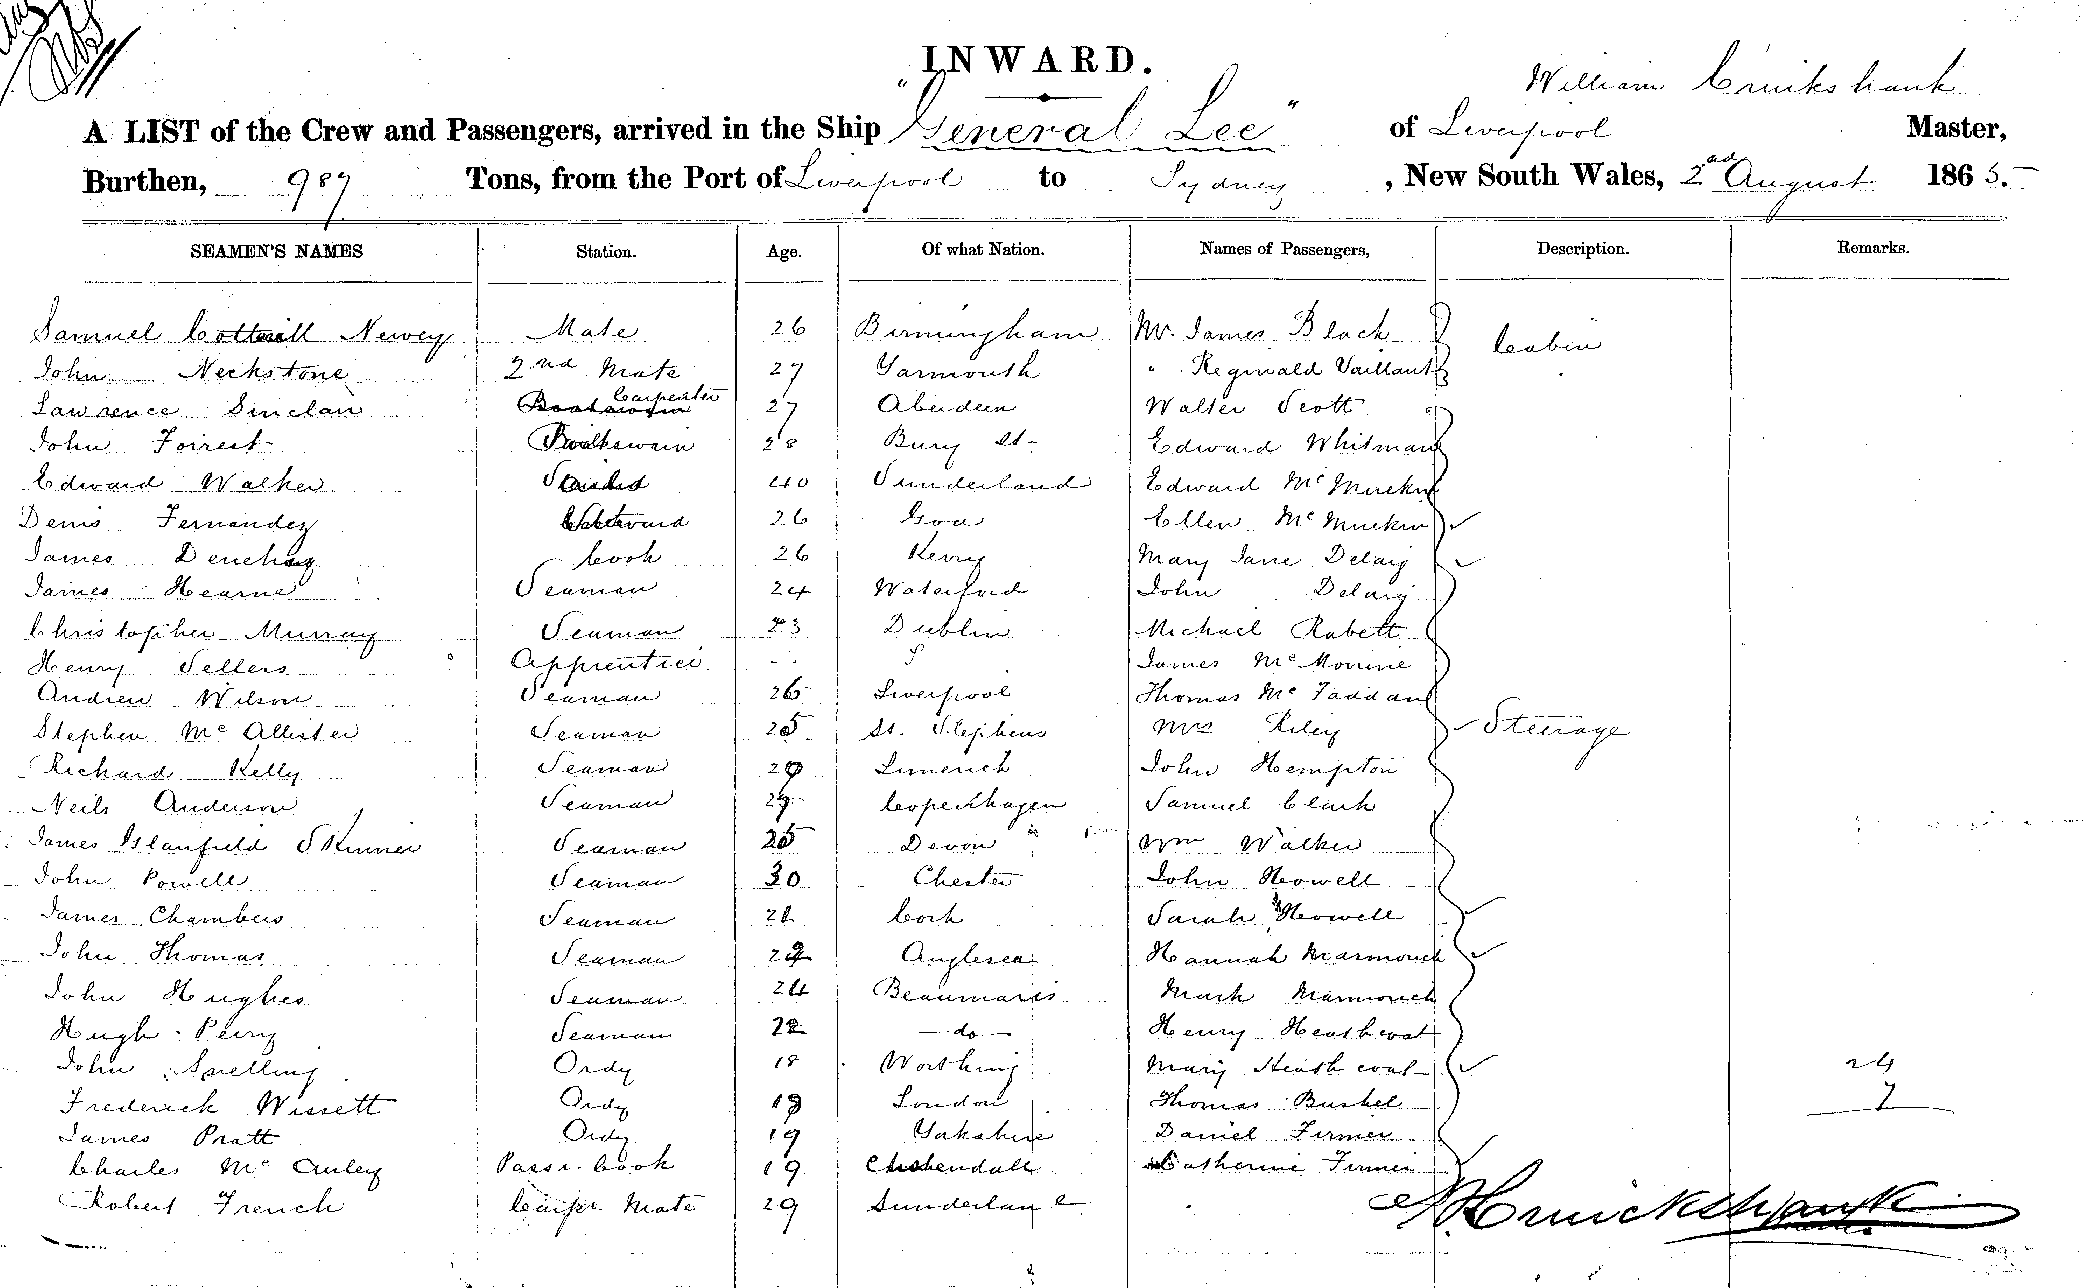 INWARD.
William Cruikshank
A LIST of the Crew and Passengers, arrived in the Ship "General Lee" of Liverpool Master,
Burthen, 987 Tons, from the Port of Liverpool to Sydney, New South Wales, 2nd August 1865.
SEAMEN'S NAMES Station. Age. Of what Nation. Names of Passengers, Description. Remarks.
Samuel Cottwill Newey Mate 26 Birmingham Mr. James Black Cabin
John Neckstone 2nd Mate 27 Yarmouth " Reginald Vaillant
Lawrence Sinclair Carpenter 27 Aberdeen Walter Scott
John Forrest Boatswain 28 Bury St- Edward Whitman
Edward Walker 40 Sunderland Edward McMuckin
Denis Fernandez 26 Goa Ellen McMuckin
James Cook 26 Kerry Mary Jane Delany
James Hearne Seaman 24 Waterford John Delany
Christopher Murray Seaman 23 Dublin Michael Rabett
Henry Sellers Apprentice James Mc
Andrew Wilson Seaman 26 Liverpool Thomas McFaddan
Stephen McAllister Seaman 25 St. Stephens Mrs Riley Steerage
Richard Kelly Seaman 29 Limerick John Hempton
Neils Anderson Seaman 29 Copenhagen Samuel Clark
James Glanfield Skinner Seaman 25 Devon Wm Walker
John Powell Seaman 30 Chester John Howell
James Chambers Seaman 21 Cork Sarah Howell
John Thomas Seaman 22 Anglesea Hannah Marmouch
John Hughes Seaman 24 Beaumaris Mark Marmouch
Hugh Perry Seaman 22 - do - Henry Heathcoat
John Snelling Ordy 18 Worthing Mary Heathcoat 24
Frederick Wissett Ordy 19 London Thomas Bushel 7
James Pratt Ordy 19 Yorkshire Daniel Firmer
Charles McAuley Passr. Cook 19 Catherine Firmer
Robert French Carpr. Mate 29 Sunderland
Cruickshank